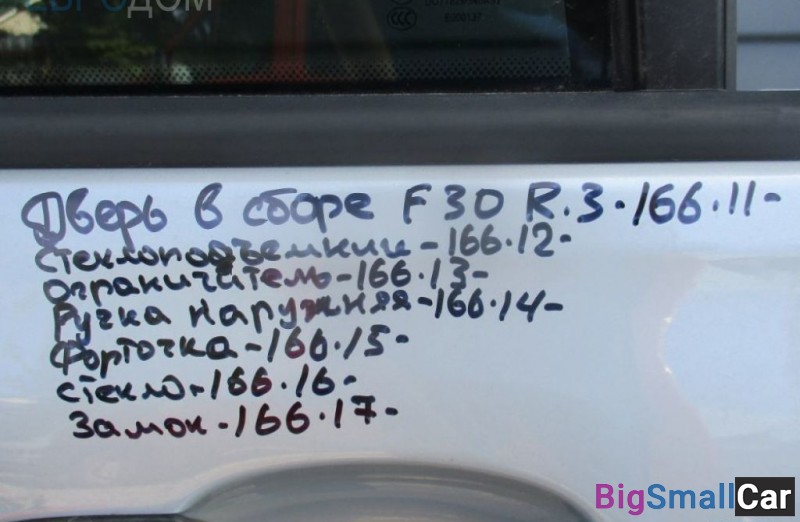 ЕВРОДОМ
CCC
Дверь в сборе F30 R.З-166.11-
стеклоподъемник-166.12-
ограничитель-166.13-
Ручка наружняя-166.14-
Форточка-166.15-
стекло-166.16-
Замок-166.17-
BigSmallCar